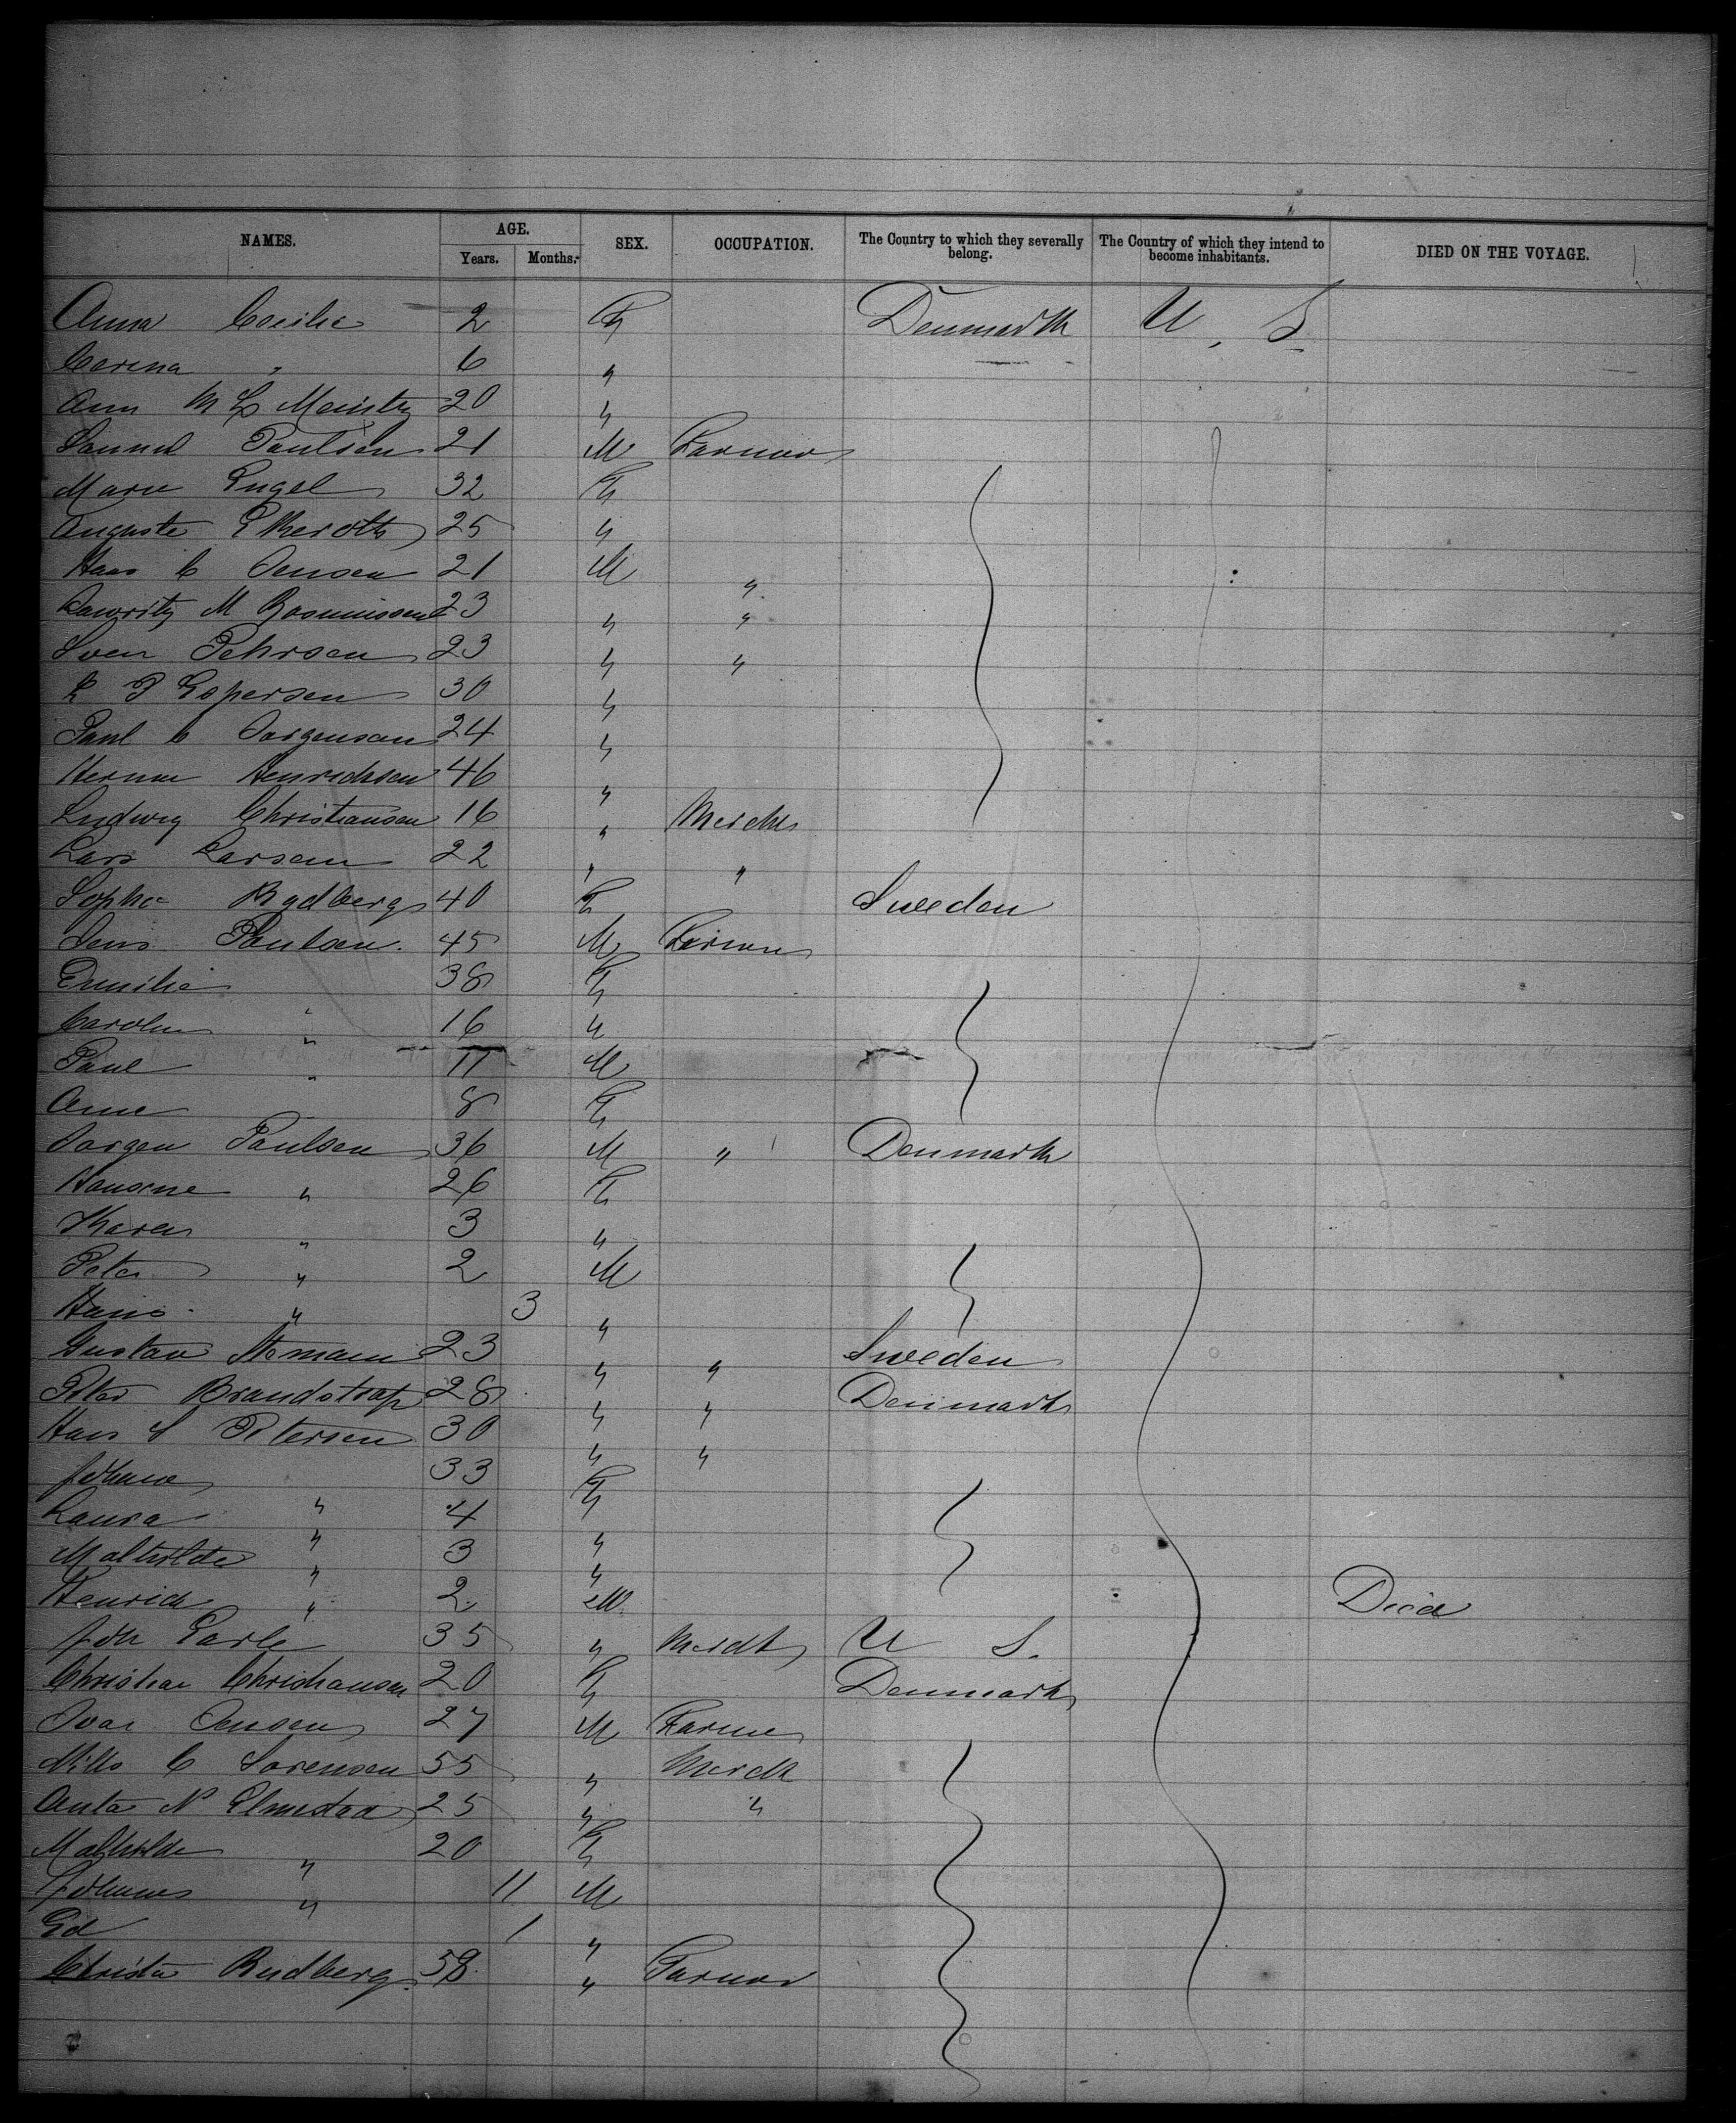 NAMES. AGE. Years. Months. SEX. OCCUPATION. The Country to which they severally belong. The Country of which they intend to become inhabitants. DIED ON THE VOYAGE.
Anna Cecilie 2 F Denmark U. S.
Carina " 6 "
Ann M 20 "
Paulsen 21 M Farmer
Marie Engel 32 F
Auguste 25 "
Hans C Jensen 21 M "
Lawritz M Rasmussen 23 " "
Sven Pehrsen 23 " "
L P Espersen 30 "
Paul C Jorgensen 24 "
Henrichsen 46 "
Ludwig Christiansen 16 "
Lars Larsen 22 " "
Sophie Rydberg 40 F Sweden
Jens Paulsen 45 M
Emilie " 38 F
Carolin " 16 "
Paul " 11 M
Anne 8 F
Jorgen Paulsen 36 M " Denmark
Hansine " 26 F
Karen " 3 "
Peter " 2 M
Hans " 3 "
Gustav 23 " " Sweden
Peter Brandstrup 28 " " Denmark
Hans S Petersen 30 " "
Johane " 33 F
Laura " 4 "
Mathilde " 3 "
Henrich " 2 M Died
Joh Earle 35 " Mercht U S.
Christian Christiansen 20 F Denmark
Ivar Jensen 27 M Farmer
Nills C Sorensen 55 " Mercht
N 25 " "
Mathilde " 20 F
Johannes " 11 M
Ed 1 "
Rudberg 58 " Farmer